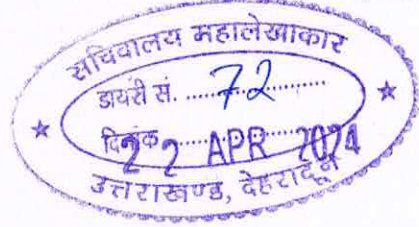 सचिवालय महालेखाकार
डायरी सं. ........72........
दिनांक 22 APR 2024
उत्तराखण्ड, देहरादून